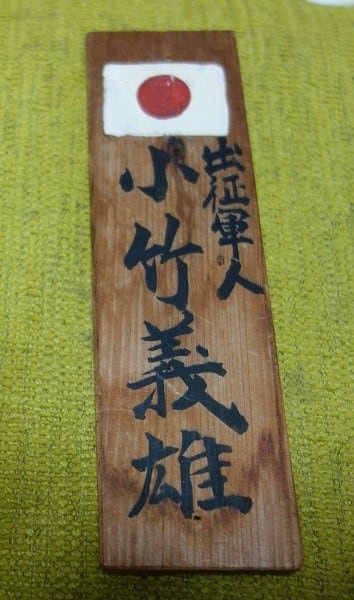 出征軍人
小竹義雄